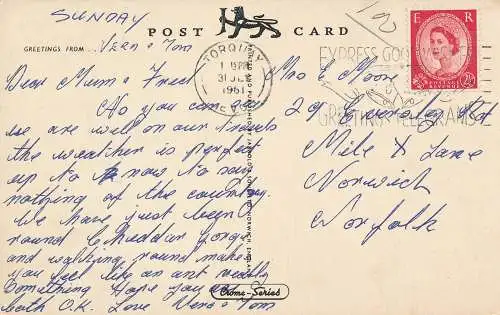 SUNDAY
POST CARD
GREETINGS FROM ... Vera & Tom
TORQUAY
1 PM
31 JLY
1961
DEVON
EXPRESS GOOD
GREETINGS TELEGRAMS
E R
POSTAGE
REVENUE
2½
Dear Mum & Fred
Mrs E Moore
No you can
29
we are well on our travels
the weather is perfect
Mile X Lane
up to now to say
Norwich
nothing of the country.
Norfolk
We have just been
round Cheddar Gorge
and walking round makes
you feel like an ant really
Something Hope you are
both O.K. Love Vera & Tom
Crome-Series